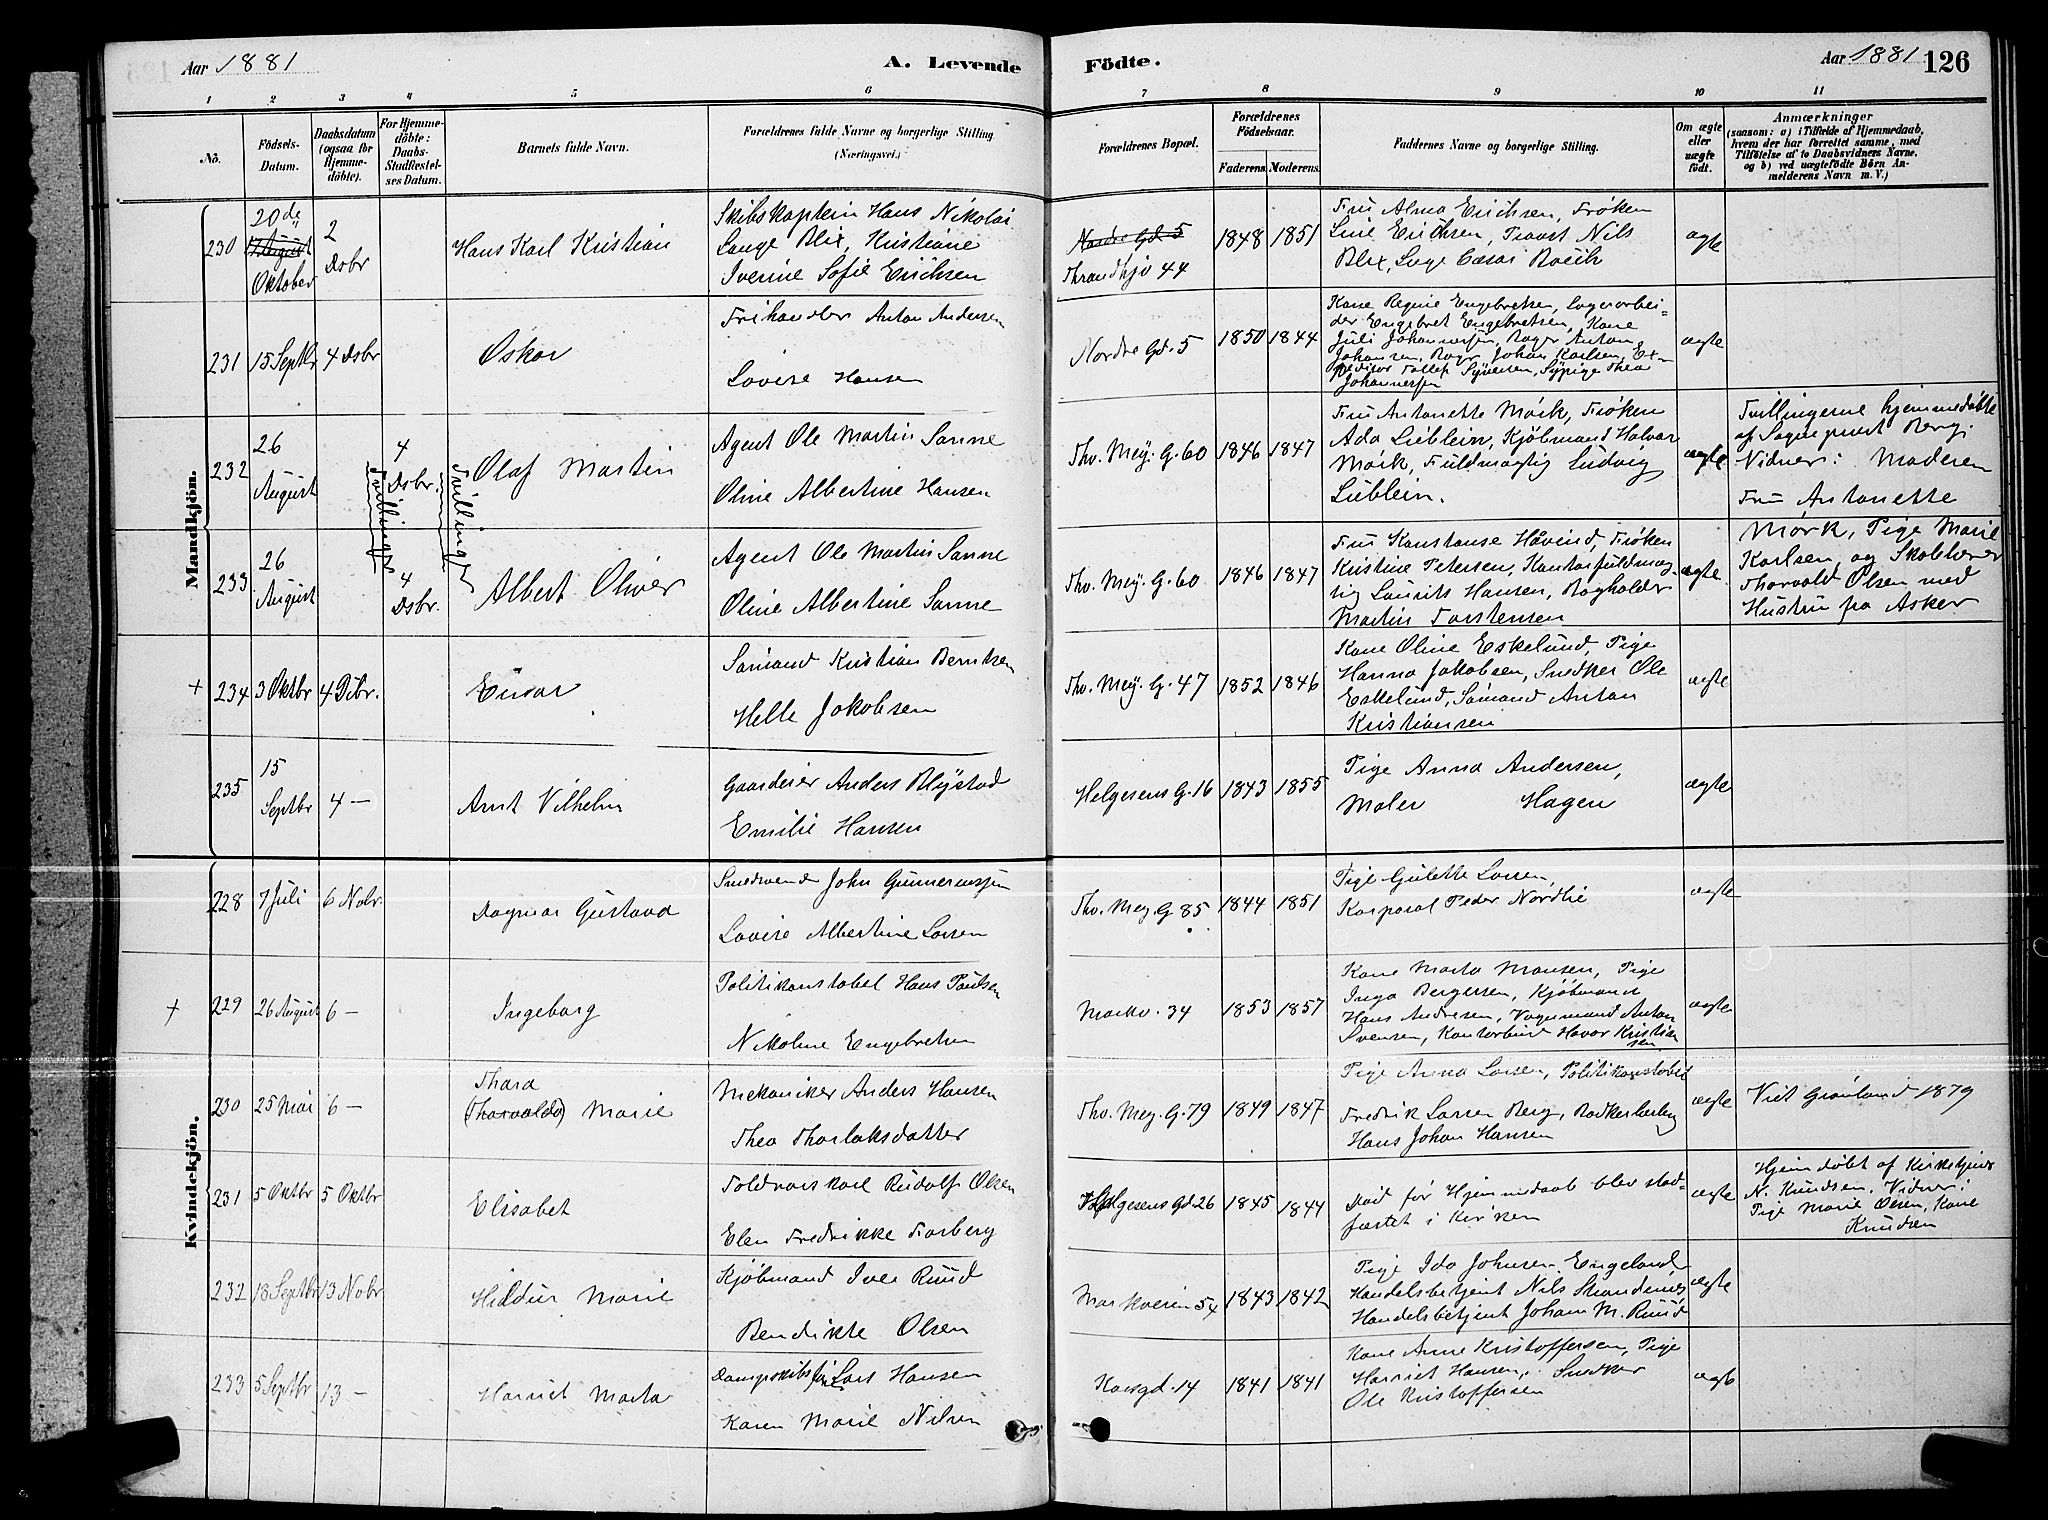 Aar 1881
A. Levende
Födte.
Aar 1881
126
1 2 3 4 5 6 7 8 9 10 11
No.
Födsels-
Datum.
Daabsdatum
(ogsaa for
Hjemme-
döbte).
For Hjemme-
döbte:
Daabs-
Stadfæstel-
ses Datum.
Barnets fulde Navn.
Forældrenes fulde Navne og borgerlige Stilling
(Næringsvei.)
Forældrenes Bopæl.
Forældrenes
Födselsaar.
Faderens. Moderens.
Faddernes Navne og borgerlige Stilling.
Om ægte
eller
uægte
födt.
Anmærkninger
(saasom: a) i Tilfælde af Hjemmedaab,
hvem der har forrettet samme, med
Tilföielse af to Daabsvidners Navne,
og b) ved uægtefödte Börn An-
melderens Navn m. V.)
Mandkjön.
230
20de
August
Oktober
2
Dsbr
Hans Karl Kristian
Skibskaptein Hans Nikolai
Lange Blix, Kristiane
Iverine Sofie Erichsen
Nordre Gd. 5
Thrandhjv 44
1848
1851
Fru Alma Erichsen, Frøken
Line Erichsen, Nils
Blix,
ægte
231
15 Septbr
4 Dsbr
Oskar
Frihandler Anton Andersen
Lovise Hansen
Nordre Gd. 5
1850
1844
Kone Regine Engebretsen, Lagerarbei-
der Engebret Engebretsen, Kone
Juli Johannessen, Bager Anton
Johansen, Bager Johan Karlsen, Ex-
peditør Tollef Syversen, Sypige Thea
Johannessen
ægte
232
26
August
4
Dsbr.
Tvillinger
Tvillinger
Olaf Martin
Agent Ole Martin Sanne
Oline Albertine Hansen
Thv. Mey. G. 60
1846
1847
Fru Antonette Mörk, Frøken
Ada Lieblein, Kjöbmand Halvar
Mörk, Fuldmægtig Ludvig
Lieblein.
ægte
Tvillingerne hjemmedøbte
af Sogneprest Berg.
Vidner: Moderen
Fru Antonette
Mörk, Pige Marie
Karlsen og Skolelærer
Thorvald Olsen med
Hustru fra Asker
233
26
August
4
Dsbr.
Albert Oliver
Agent Ole Martin Sanne
Oline Albertine Sanne
Thv. Mey. G. 60
1846
1847
Fru Konstanse Håvind, Frøken
Kristine Petersen, Kontorfuldmæg-
tig Laurits Hansen, Bogholder
Martin Torstensen
ægte
+ 234
3 Oktbr
4 Dsbr.
Einar
Sømand Kristian Berntsen
Helle Jakobsen
Thv. Mey. G. 47
1852
1846
Kone Oline Eskelund, Pige
Hanna Jakobsen, Snedker Ole
Eskelund, Sømand Anton
Kristiansen
ægte
235
15
Septbr
4 —
Arnt Vilhelm
Gaardeier Anders Blystad
Emilie Hansen
Helgesens G. 16
1843
1855
Pige Anna Andersen,
Maler Hagen
ægte
Kvindekjön.
228
7 Juli
6 Nobr.
Dagmar Gustava
Smedsvend John Gunnerussen
Lovise Albertine Larsen
Thv. Mey G 85
1844
1851
Pige Gulette Larsen,
Korporal Peder Nordlie
ægte
+ 229
26 August
6 —
Ingeborg
Politikonstabel Hans Paulsen
Nikoline Engebretsen
Markv. 34
1853
1857
Kone Marta Monsen, Pige
Inga Bergersen, Kjøbmand
Hans Andresen, Vognmand Anton
Svensen, Kontorbud Havor Kristian
sen
ægte
230
25 Mai
6 —
Thora
(Thorvalda) Marie
Mekaniker Anders Hansen
Thea Thorlaksdatter
Thv. Mey. G. 79
1849
1847
Pige Anna Larsen, Politikonstabel
Fredrik Larsen Berg,
Hans Johan Hansen
ægte
Viet Grønland 1879
231
5 Oktbr
5 Oktbr
Elisabet
Toldvaskarl Rudolf Olsen
Elen Fredrikke Torberg
Helgesens Gd. 26
1845
1844
Død før Hjemmedaab blev stad-
fæstet i Kirken
ægte
Hjemdøbt af Kirketjener
N. Knudsen. Vidner:
Pige Marie Olsen, Kone
Knudsen
232
18 Septbr
13 Nobr
Hildur Marie
Kjöbmand Iver Ruud
Bendikte Olsen
Markveien 54
1843
1842
Pige Ida Johnsen Engeland
Handelsbetjent Nils Strandenæs
Handelsbetjent Johan M. Ruud
ægte
233
5 Septbr
13 —
Harriet Marta
Dampskibsfør. Lars Hansen
Karen Marie Nilsen
Korsgd. 14
1841
1841
Kone Anne Kristoffersen, Pige
Harriet Hansen, Snedker
Ole Kristoffersen
ægte